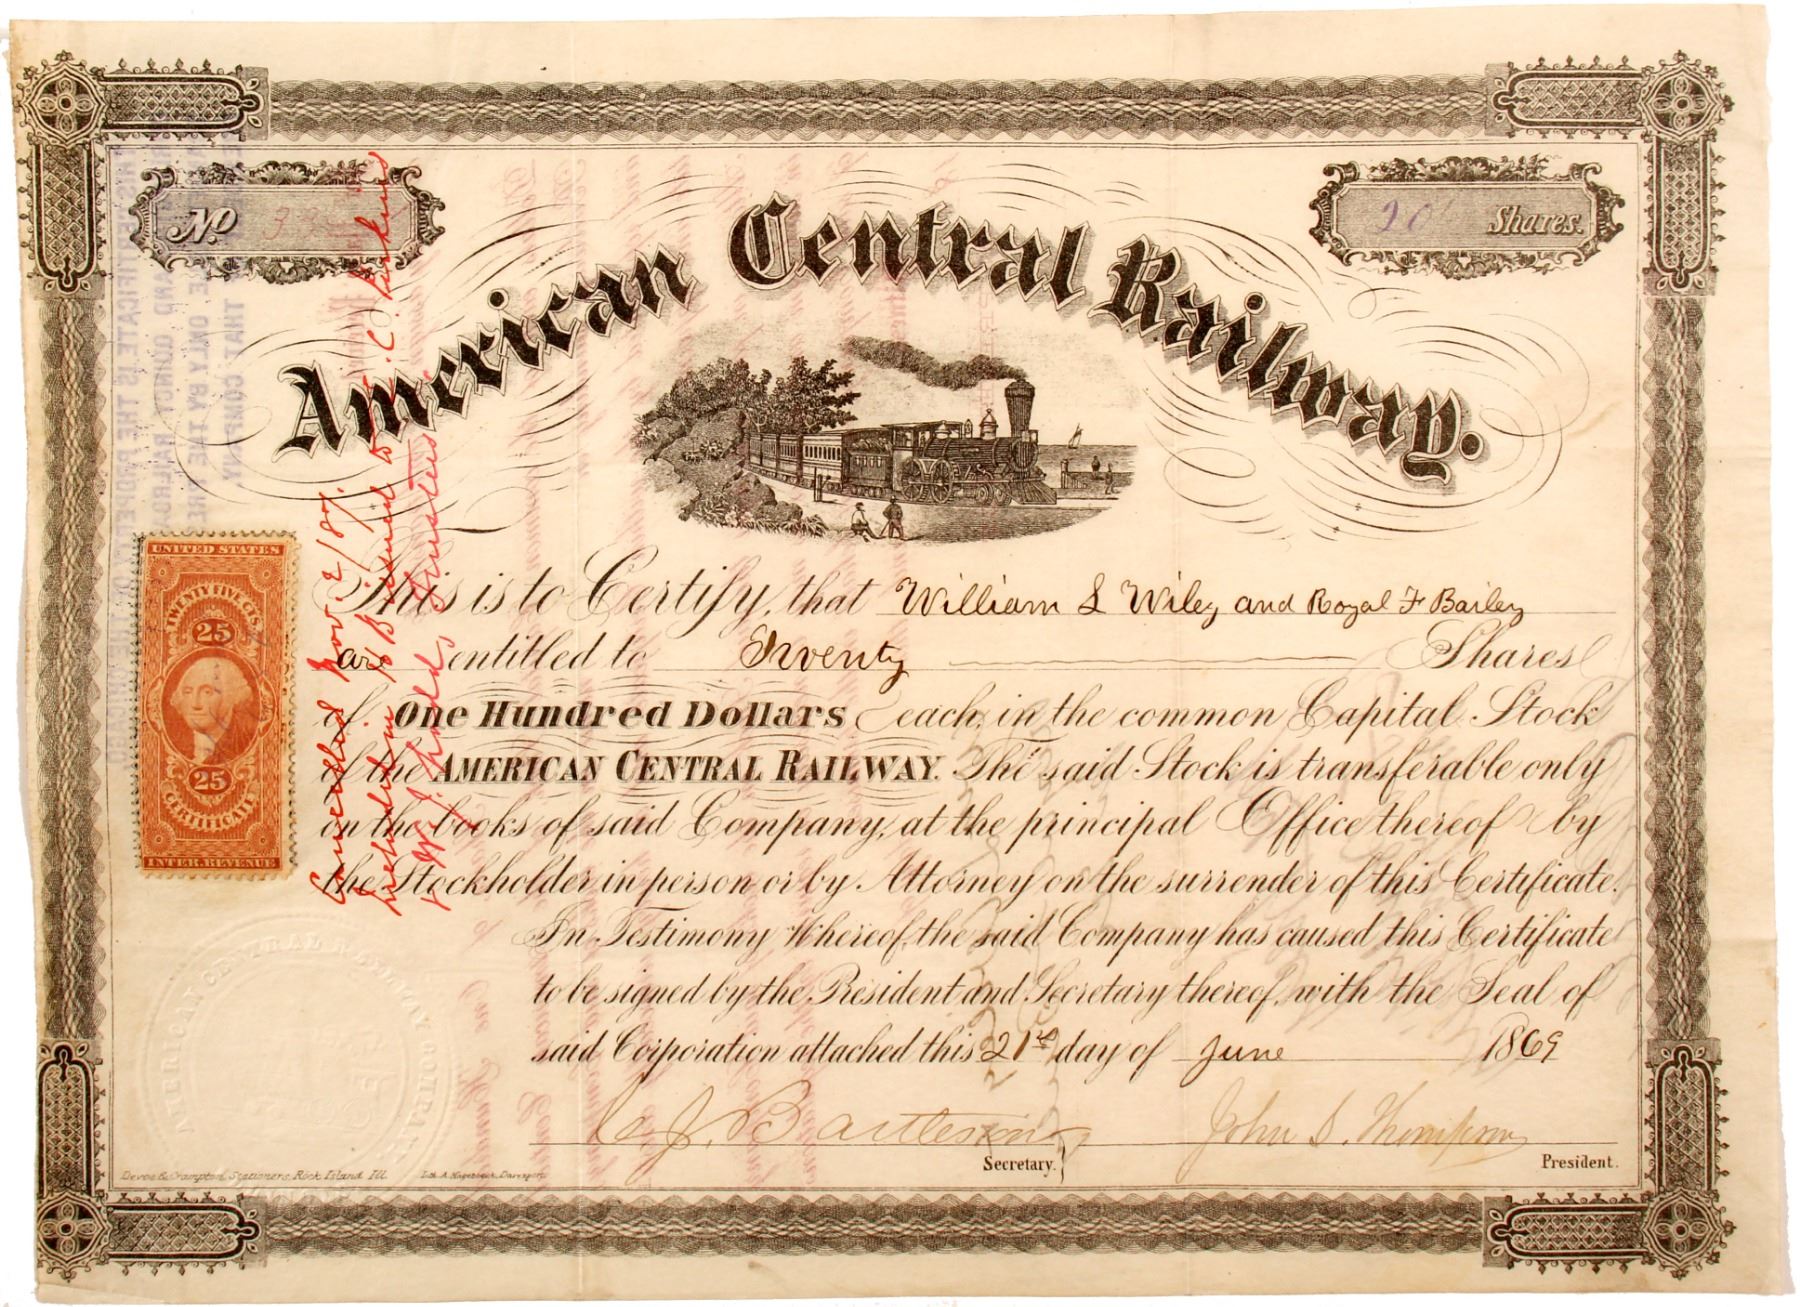 No
20 Shares.
American Central Railway.
UNITED STATES
TWENTY FIVE CTS.
25
25
CERTIFICATE
INTER. REVENUE
This is to Certify, that William S Wiley and Royal F Bailey
are entitled to Twenty Shares
of One Hundred Dollars each, in the common Capital Stock
of the AMERICAN CENTRAL RAILWAY. The said Stock is transferable only
on the books of said Company, at the principal Office thereof by
the Stockholder in person or by Attorney on the surrender of this Certificate.
In Testimony Whereof, the said Company has caused this Certificate
to be signed by the President and Secretary thereof, with the Seal of
said Corporation attached this 21st day of June 1869
C J. Bartleson
Secretary.
John S. Thompson
President.
Cancelled Nov. 2/87.
in B issued to C. Perkins
Trustees
AMERICAN CENTRAL RAILWAY COMPANY
Devoe & Crampton, Stationers, Rock Island Ill.
Lith. A. Hageboeck, Davenport